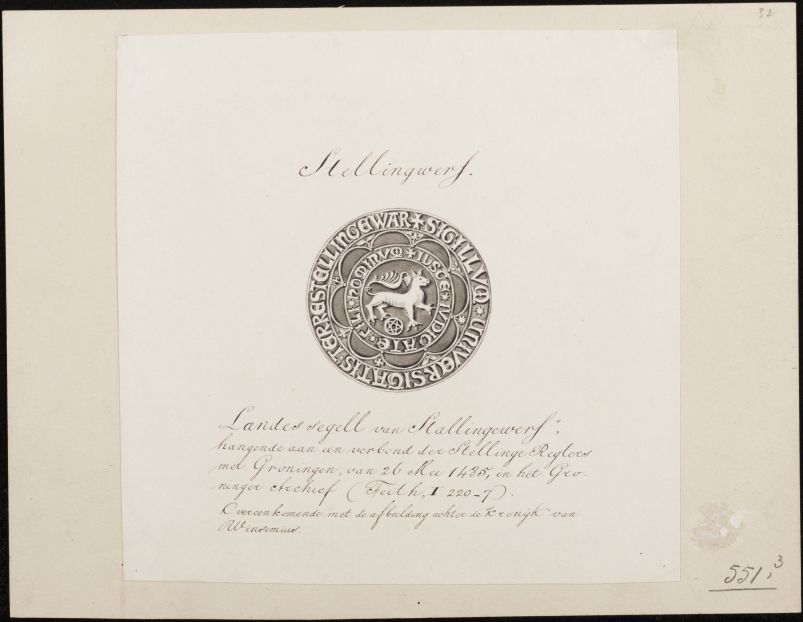 32
Stellingwerf.
✢ SIGILLVM ✶ UNIVERSIGATIS TERRE STELLINGEWAR
✶ IUSTE ✶ IVDICATE ✶ FILI ✶ HOMINVM
Landes segell van Stallingewerf";
hangende aan een verbond der Stellinge Regters
met Groningen, van 26 Mei 1435, in het Gro-
ninger Archief (Feith, I 220-7).
Overeenkomende met de afbeelding achter de Kronijk van
Winsemius.
551,3